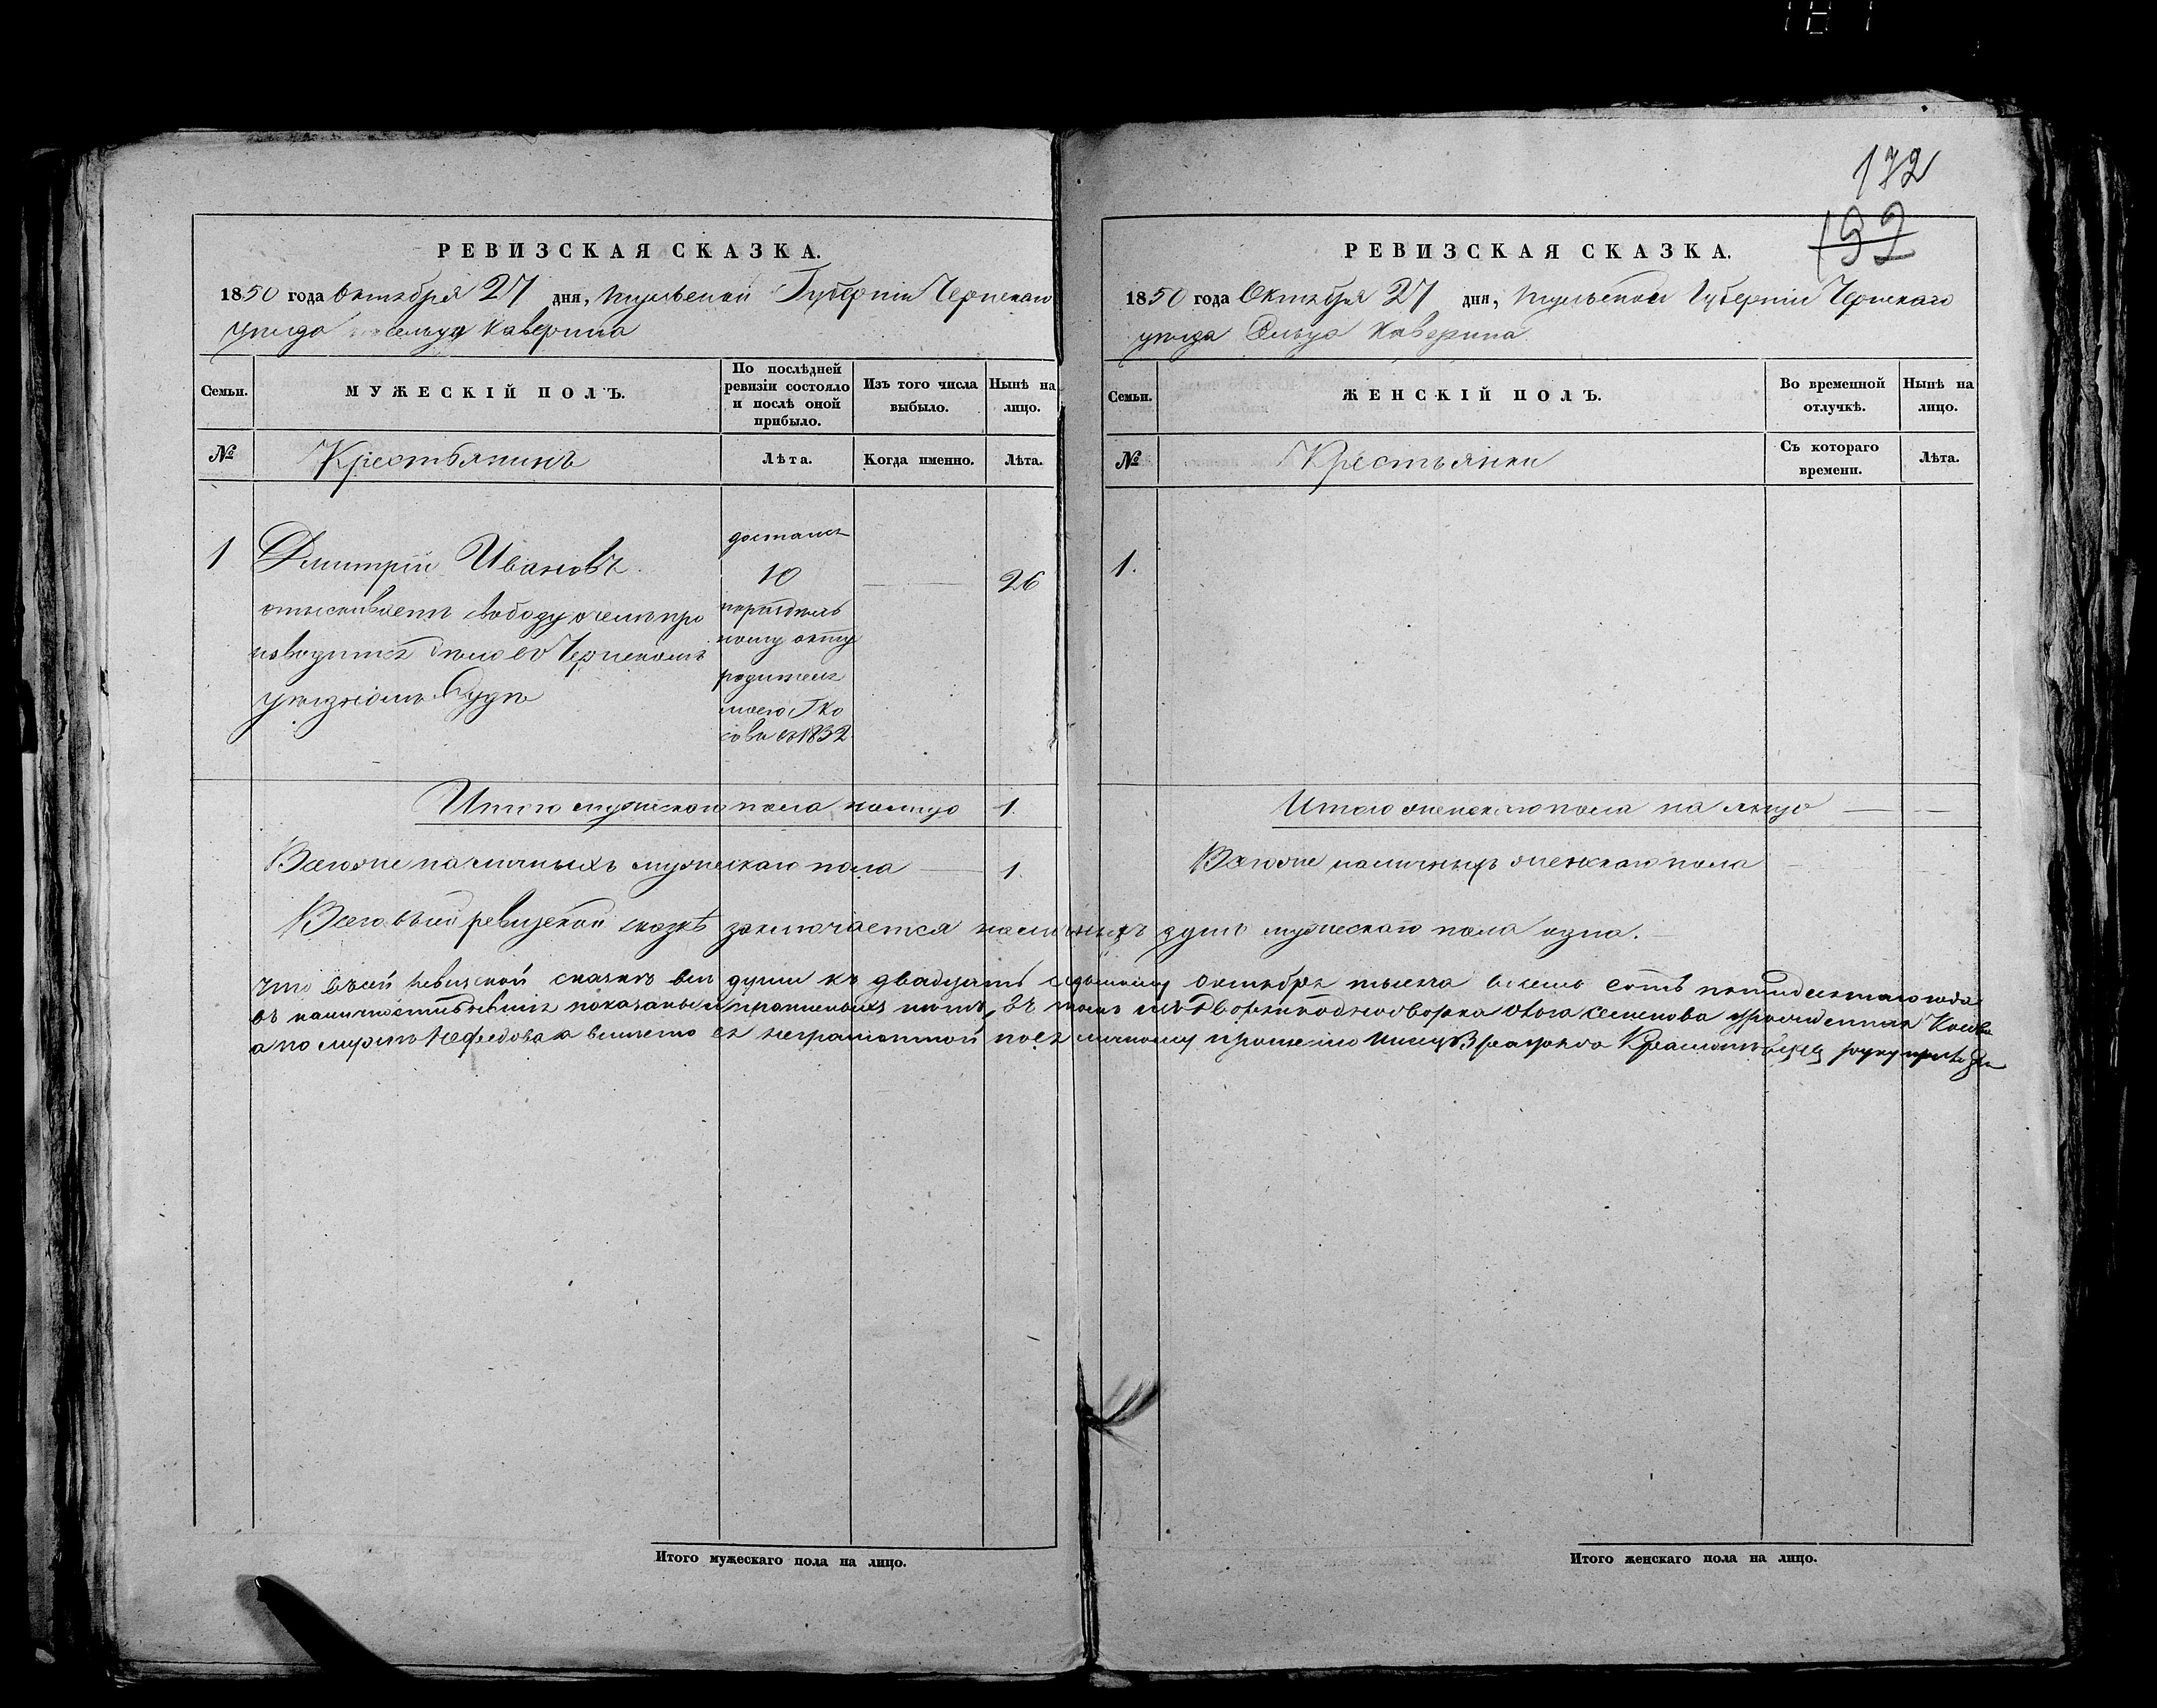 172
132
РЕВИЗСКАЯ СКАЗКА.
1850 года Октября 27 дня, Тульской Губерніи Чернскаго
уезда сельца Каверина
Семьи.
МУЖЕСКІЙ ПОЛЪ.
По послѣдней ревизіи состояло и послѣ оной прибыло.
Изъ того числа выбыло.
Нынѣ на лицо.
№
Крестьянинъ
Лѣта.
Когда именно.
Лѣта.
1
Дмитрій Ивановъ
отыскиваетъ свободу о чемъ про
изводится дело въ Чернскомъ
уездномъ Суде
достался
10
по раздель
ному акту
родителя
моего
сова въ 1832
26
Итого мужескаго пола на лицо 1.
Всего же наличныхъ мужескаго пола 1
РЕВИЗСКАЯ СКАЗКА.
1850 года Октября 27 дня, Тульской Губерніи Чернскаго
уезда Сельца Каверина
Семьи.
ЖЕНСКІЙ ПОЛЪ.
Во временной отлучкѣ.
Нынѣ на лицо.
№
Крестьянки
Съ котораго времени.
Лѣта.
1.
Итого женскаго пола на лицо
Всего же наличныхъ женскаго пола
Всего въ сей ревизской сказкѣ заключается наличныхъ душъ мужескаго пола одна.
Что въ сей ревизской сказке все души къ двадцать седьмому октября тысеча восемь сотъ пятидесятаго года
въ наличности показаны и нетъ, въ томъ
а по мужу Нефедова а вместо ея неграмотной по ея личному прошенію руку приложилъ
Итого мужескаго пола на лицо.
Итого женскаго пола на лицо.